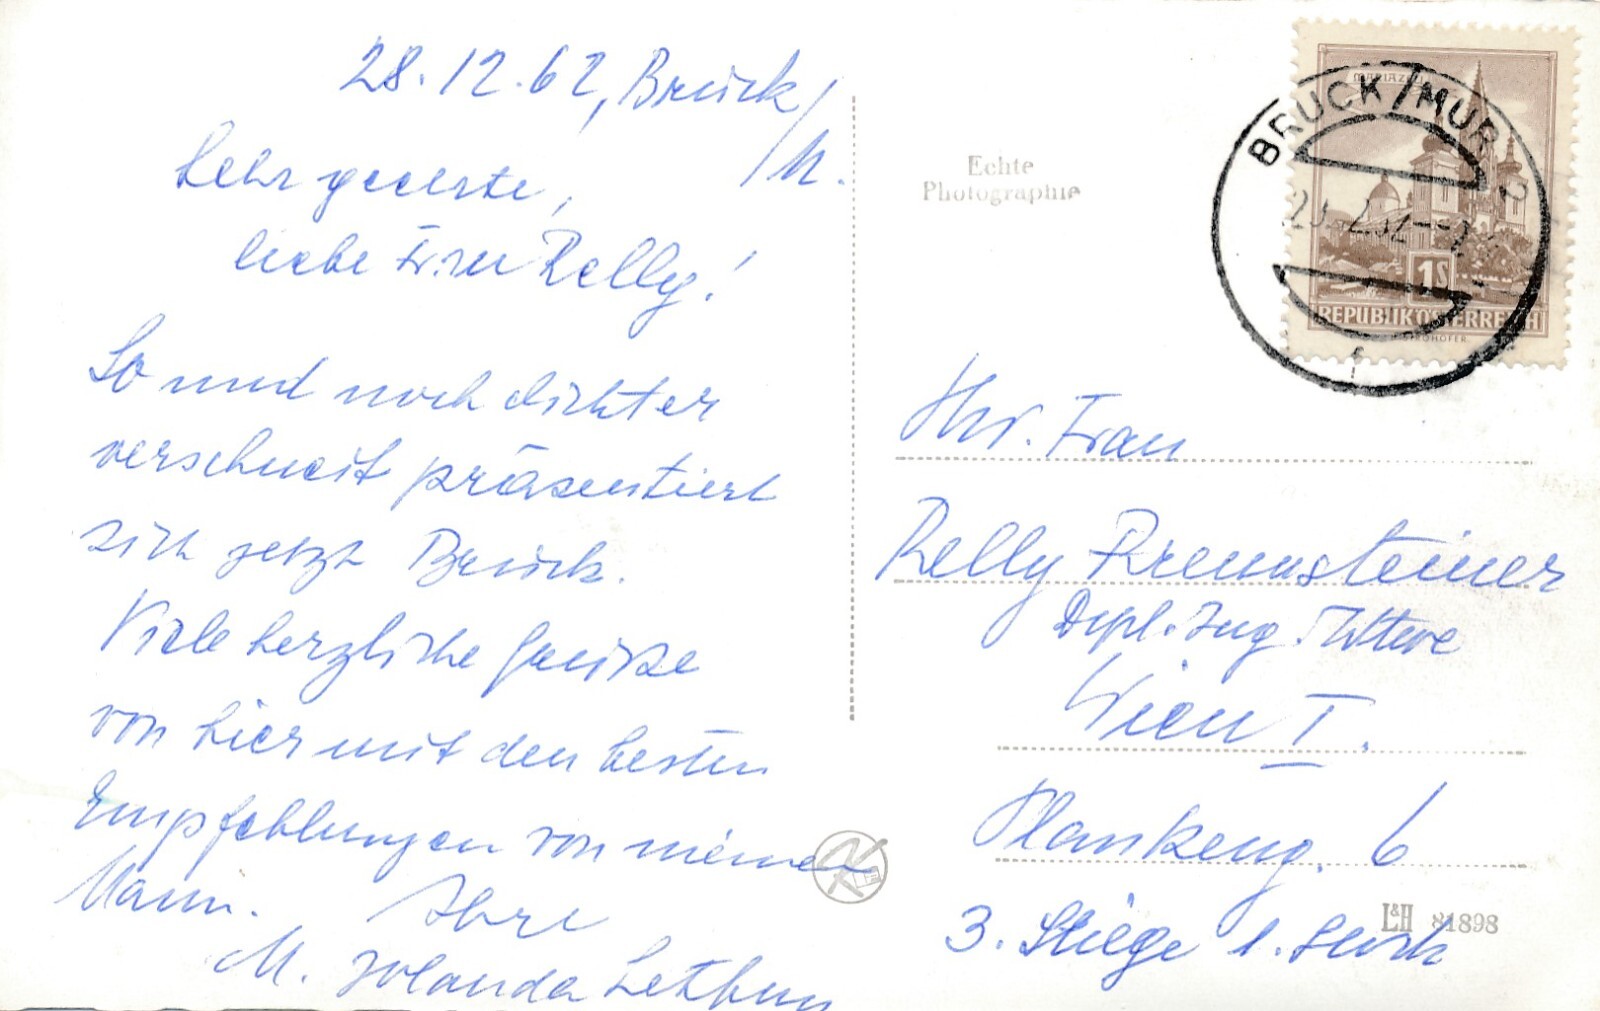 28.12.62, Bruck/
/M.
Sehr geehrte,
liebe Frau Relly!
So und noch dichter
verschneit präsentiert
sich jetzt Bruck.
Viele herzliche Grüße
von hier mit den besten
Empfehlungen von meinem
Mann. Ihre
M. Jolanda
Echte
Photographie
MARIAZELL
1S
REPUBLIK ÖSTERREICH
BRUCK/MUR 2
f
Hr. Frau
Relly Premsteiner
Dipl. Ing. Witwe
Wien I.
Plankeng. 6
3. Stiege 1. Stock
L&H 81898
K